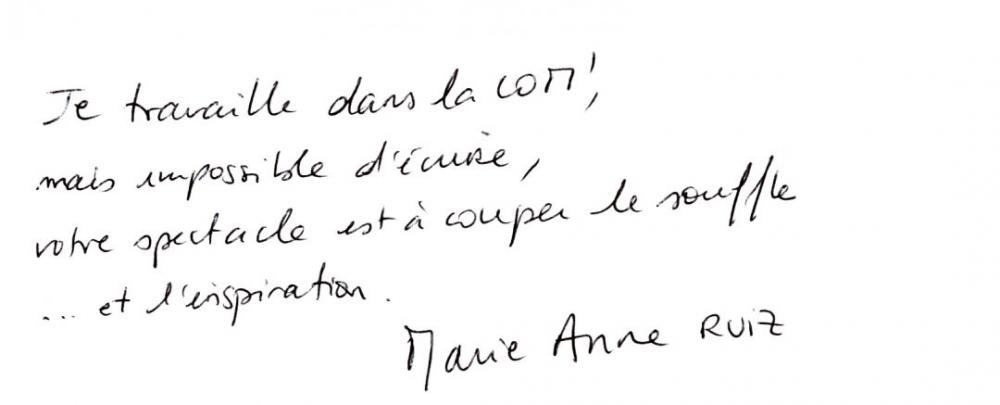 Je travaille dans la COM',
mais impossible d'écrire,
votre spectacle est à couper le souffle
... et l'inspiration.
Marie Anne RUIZ